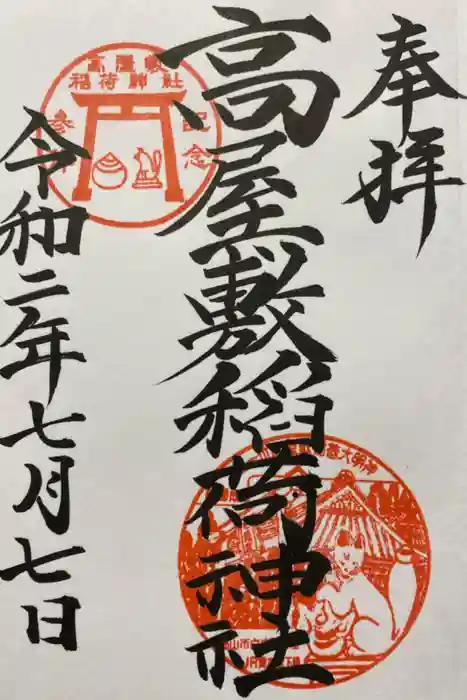 奉拝
高屋敷稲荷神社
令和二年七月七日
高屋敷
稲荷神社
参拝
記念